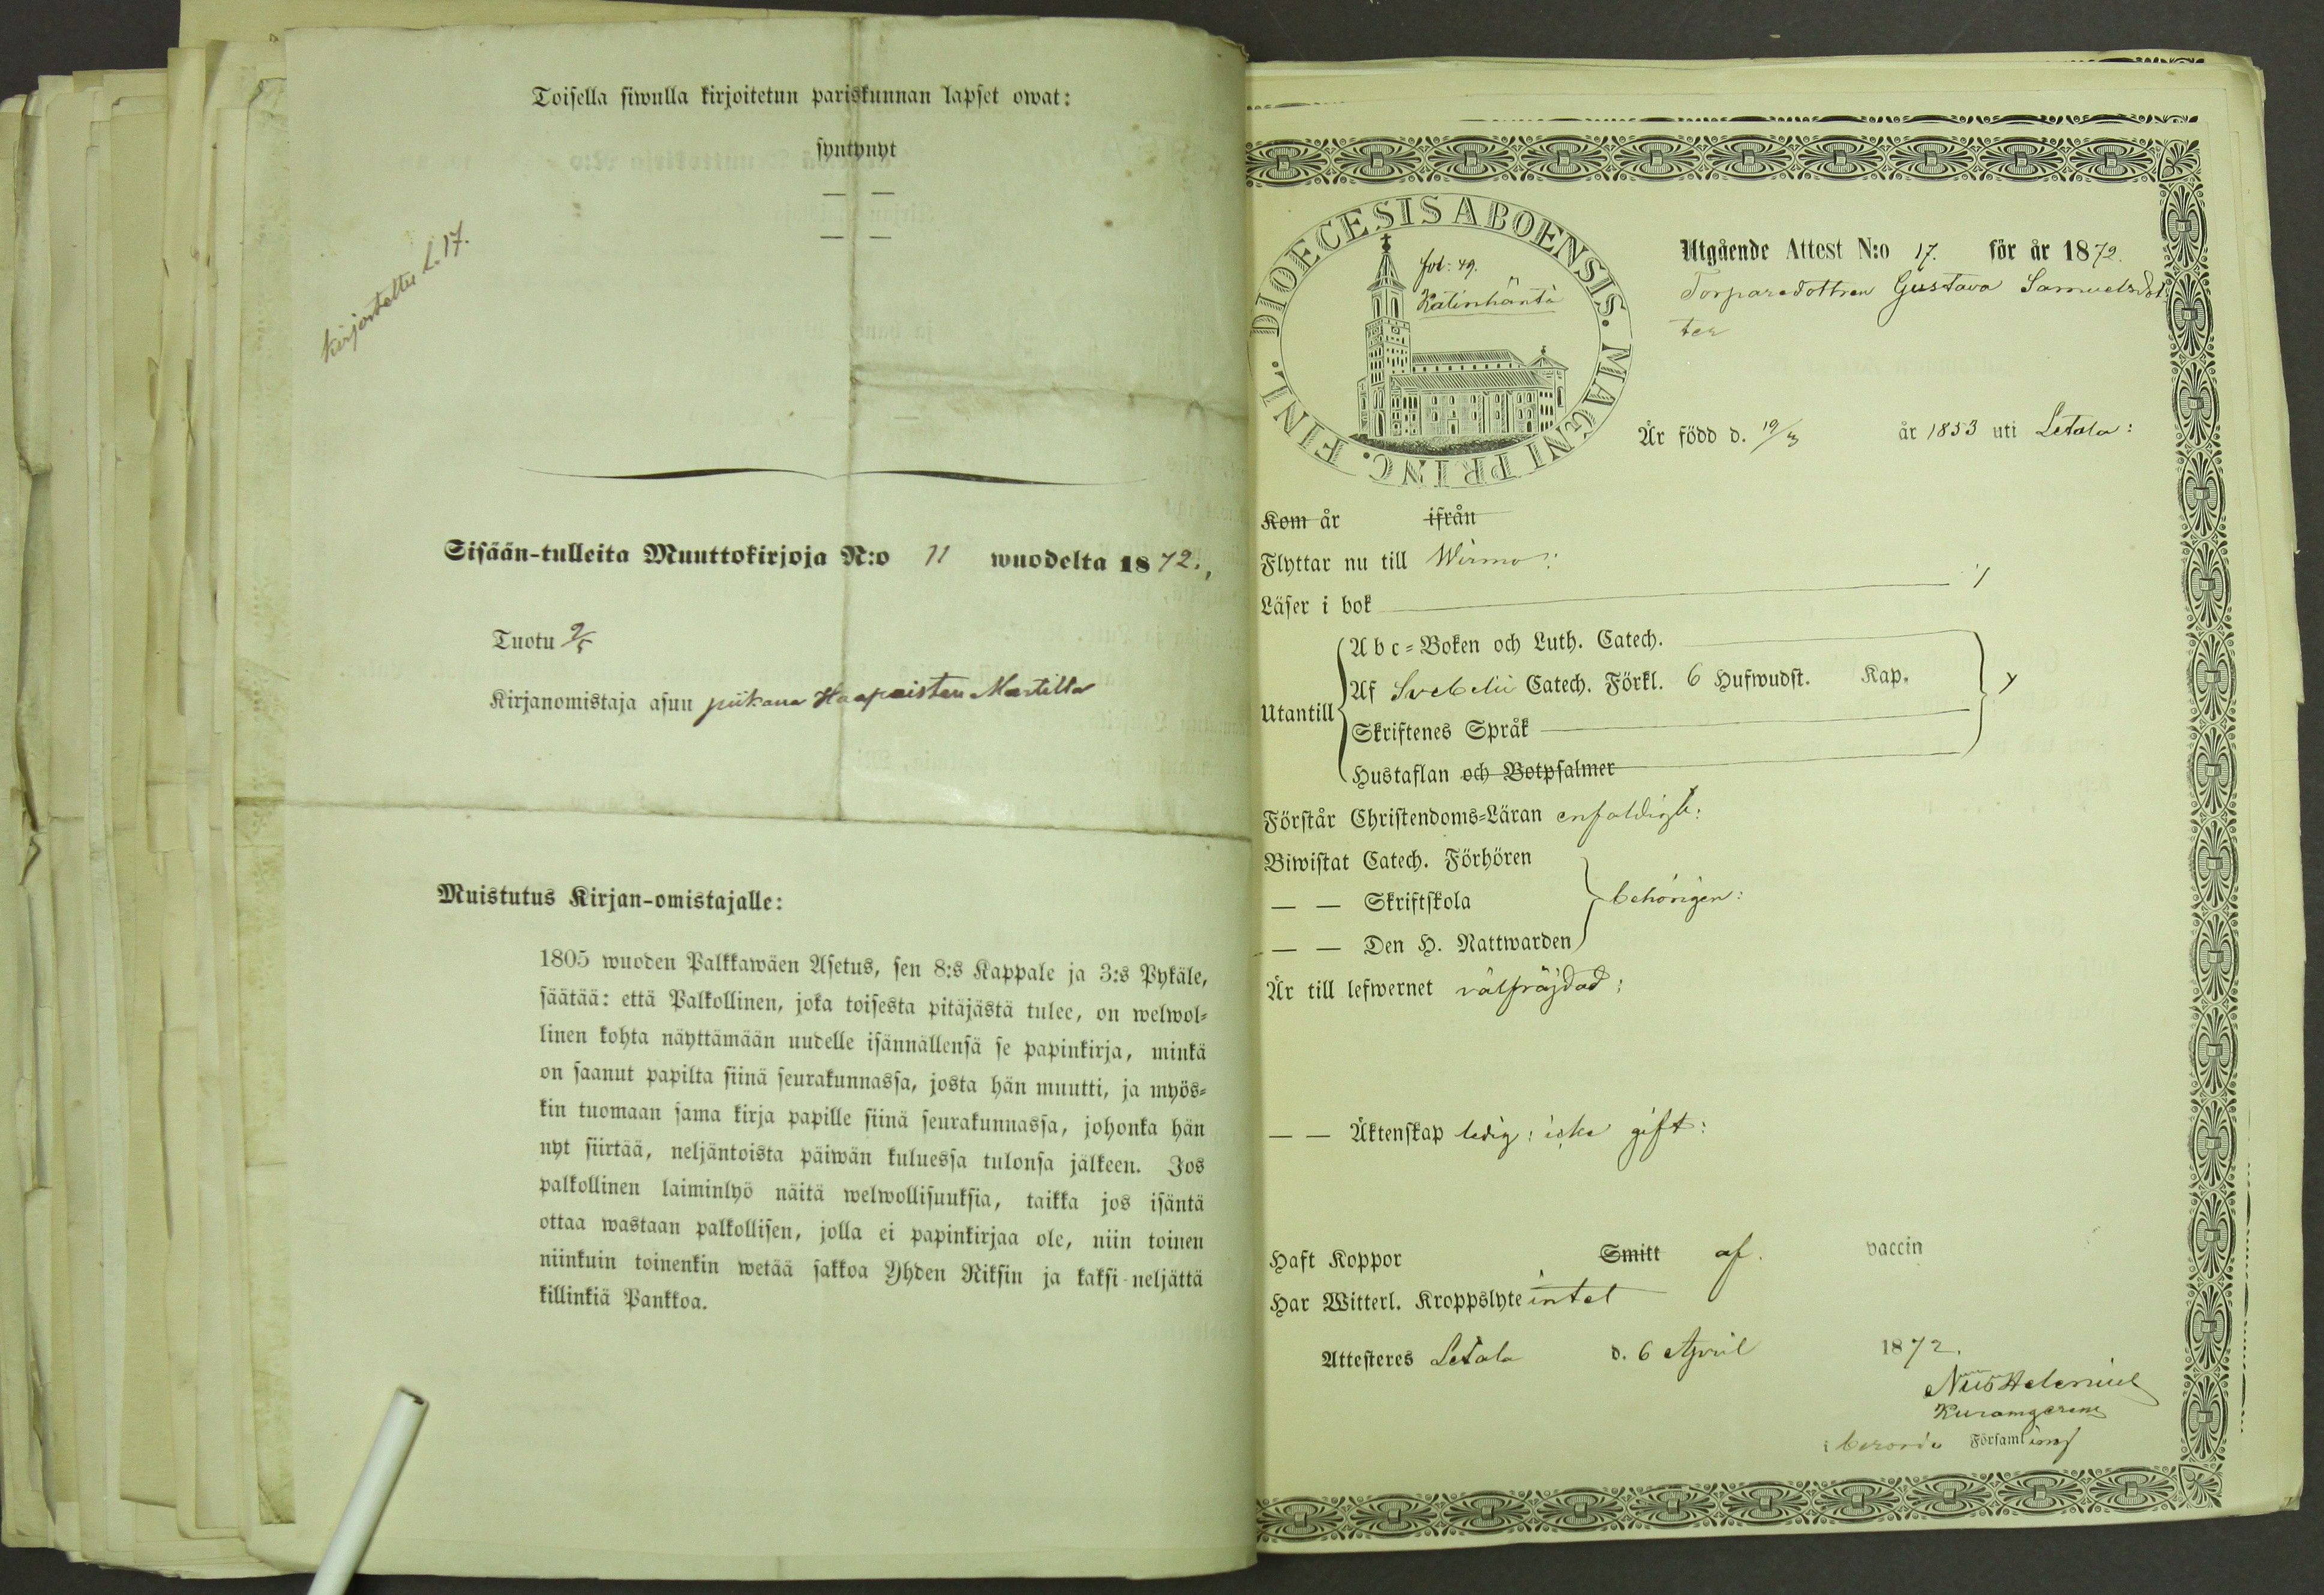 Toisella siwulla kirjoitetun pariskunnan lapset owat:
syntynyt
— —
— —
kirjoitettu L. 17.
Sisään-tulleita Muuttokirjoja N:o 11 wuodelta 1872.,
Tuotu 9/5
Kirjanomistaja asuu piikana Haapaisten Martilla
Muistutus Kirjan-omistajalle:
1805 wuoden Palkkawäen Asetus, sen 8:s Kappale ja 3:s Pykäle,
säätää: että Palkollinen, joka toisesta pitäjästä tulee, on welwol-
linen kohta näyttämään uudelle isännällensä se papinkirja, minkä
on saanut papilta siinä seurakunnassa, josta hän muutti, ja myös-
kin tuomaan sama kirja papille siinä seurakunnassa, johonka hän
nyt siirtää, neljäntoista päiwän kuluessa tulonsa jälkeen. Jos
palkollinen laiminlyö näitä welwollisuuksia, taikka jos isäntä
ottaa wastaan palkollisen, jolla ei papinkirjaa ole, niin toinen
niinkuin toinenkin wetää sakkoa Yhden Riksin ja kaksi-neljättä
killinkiä Pankkoa.
DIOECESIS ABOENSIS. MAGNI PRINC. FINL.
fol: 49.
Katinhäntä
Utgående Attest N:o 17. för år 1872.
Torparedottren Gustava Samuelsdot
ter
Är född d. 19/3 år 1853 uti Letala:
Kom år ifrån
Flyttar nu till Wirmo:
Läser i bok
Abc-Boken och Luth. Catech.
Af Svebelii Catech. Förkl. 6 Hufwudst. Kap.
Utantill
Skriftenes Språk
Hustaflan och Botpsalmer
Förstår Christendoms-Läran enfaldigt:
Biwistat Catech. Förhören
— — Skriftskola behörigen:
— — Den H. Nattwarden
Är till lefwernet välfräjdad;
— — Äktenskap ledig: icke gift:
Haft Koppor Smitt af. vaccin
Har Witterl. Kroppslyte intet
Attesteres Letala d. 6 April 1872.
Nils Helenius
i Församling